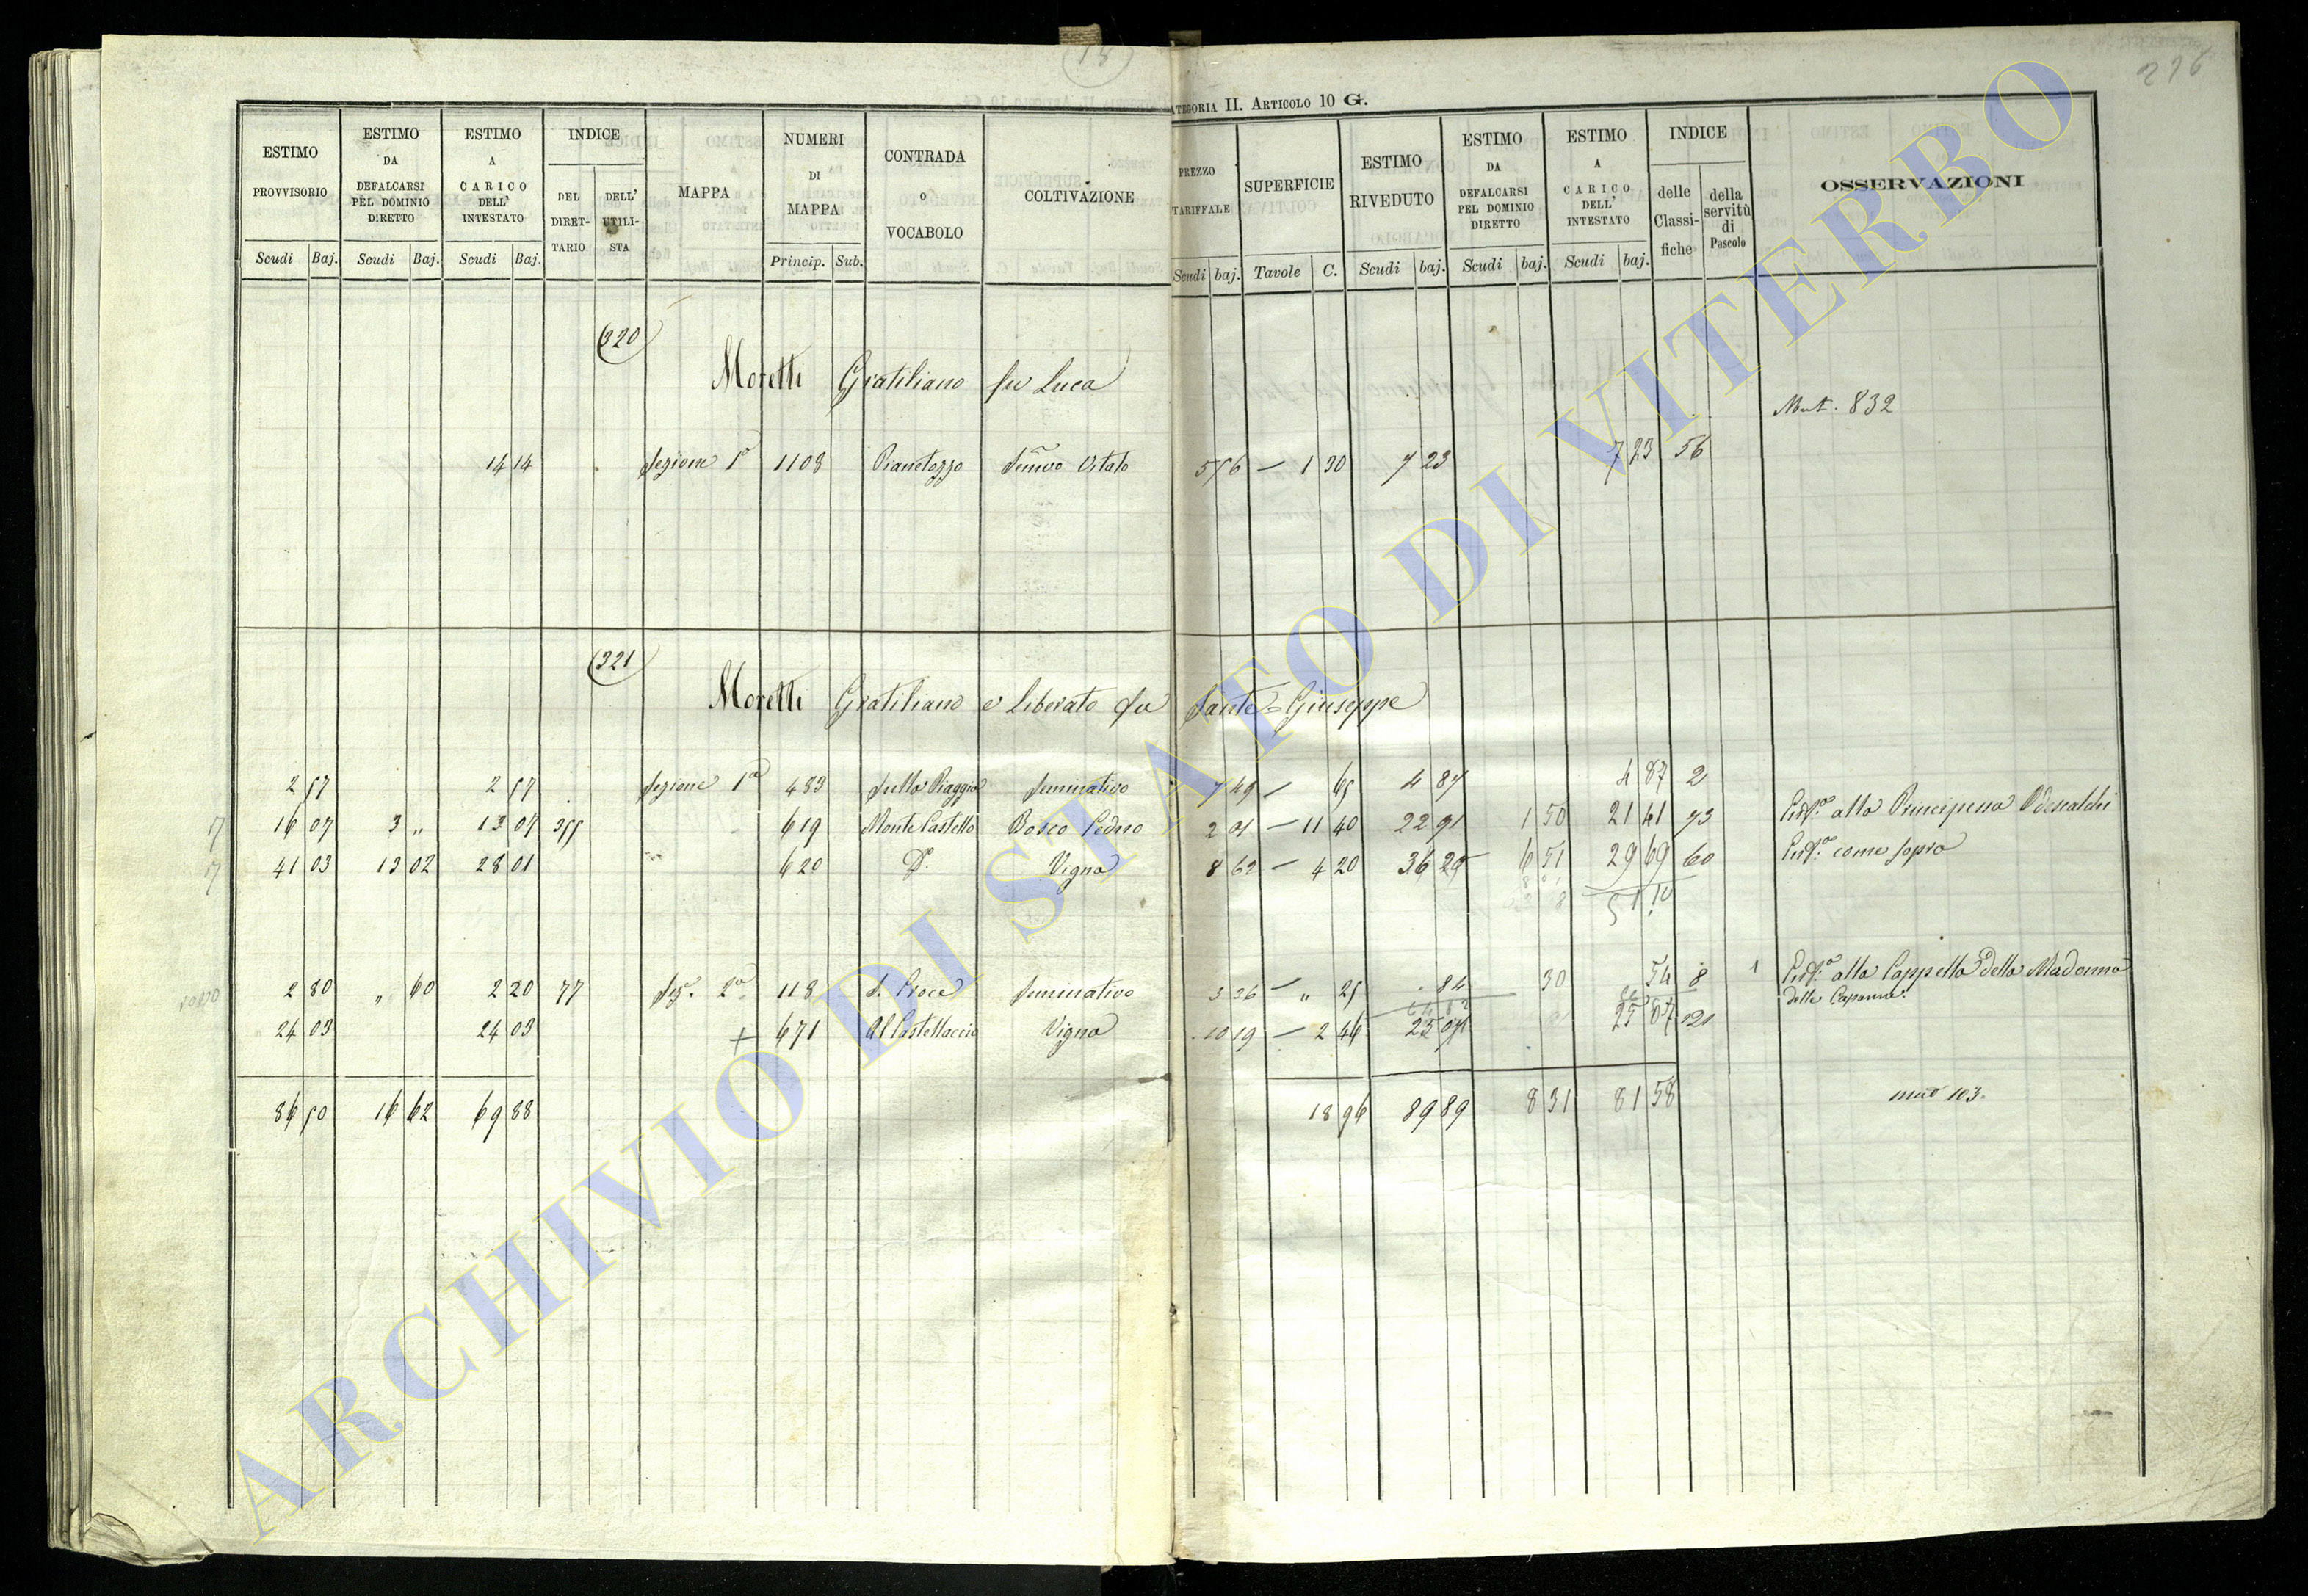 276
CATEGORIA II. ARTICOLO 10 G.
ESTIMO PROVVISORIO Scudi Baj.
ESTIMO DA DEFALCARSI PEL DOMINIO DIRETTO Scudi Baj.
ESTIMO A CARICO DELL' INTESTATO Scudi Baj.
INDICE DEL DIRETTARIO DELL' UTILISTA
MAPPA
NUMERI DI MAPPA Princip. Sub.
CONTRADA o VOCABOLO
COLTIVAZIONE
PREZZO TARIFFALE Scudi baj.
SUPERFICIE Tavole C.
ESTIMO RIVEDUTO Scudi baj.
ESTIMO DA DEFALCARSI PEL DOMINIO DIRETTO Scudi baj.
ESTIMO A CARICO DELL' INTESTATO Scudi baj.
INDICE delle Classifiche della servitù di Pascolo
OSSERVAZIONI
320
Moretti Gratiliano fu Luca
Mut. 832
14 14 Sezione 1a 1108 Pianetozzo Semivo Vitato 5 56 — 1 30 7 23 7 23 56
321
Moretti Gratiliano e Liberato fu Sante=Giuseppe
2 57 2 57 Sezione 1a 483 Sulla Piaggia Seminativo 7 49 — 65 4 87 4 87 2
16 07 3 „ 13 07 355 619 Monte Castello Bosco Ceduo 2 01 — 11 40 22 91 1 50 21 41 73 Enf.a alla Principessa Odescalchi
41 03 13 02 28 01 620 D.o Vigna 8 62 — 4 20 36 20 6 51 29 69 60 Enf.a come sopra
2 80 „ 60 2 20 77 Sez. 2a 118 S. Croce Seminativo 3 36 — „ 25 84 30 54 8 1 Enf.a alla Cappella della Madonna
delle Capanne
24 03 24 03 + 671 Al Castellaccio Vigna 10 19 — 2 46 25 07 25 07 121
86 50 16 62 69 88 18 96 89 89 8 31 81 58 mut 103
ARCHIVIO DI STATO DI VITERBO